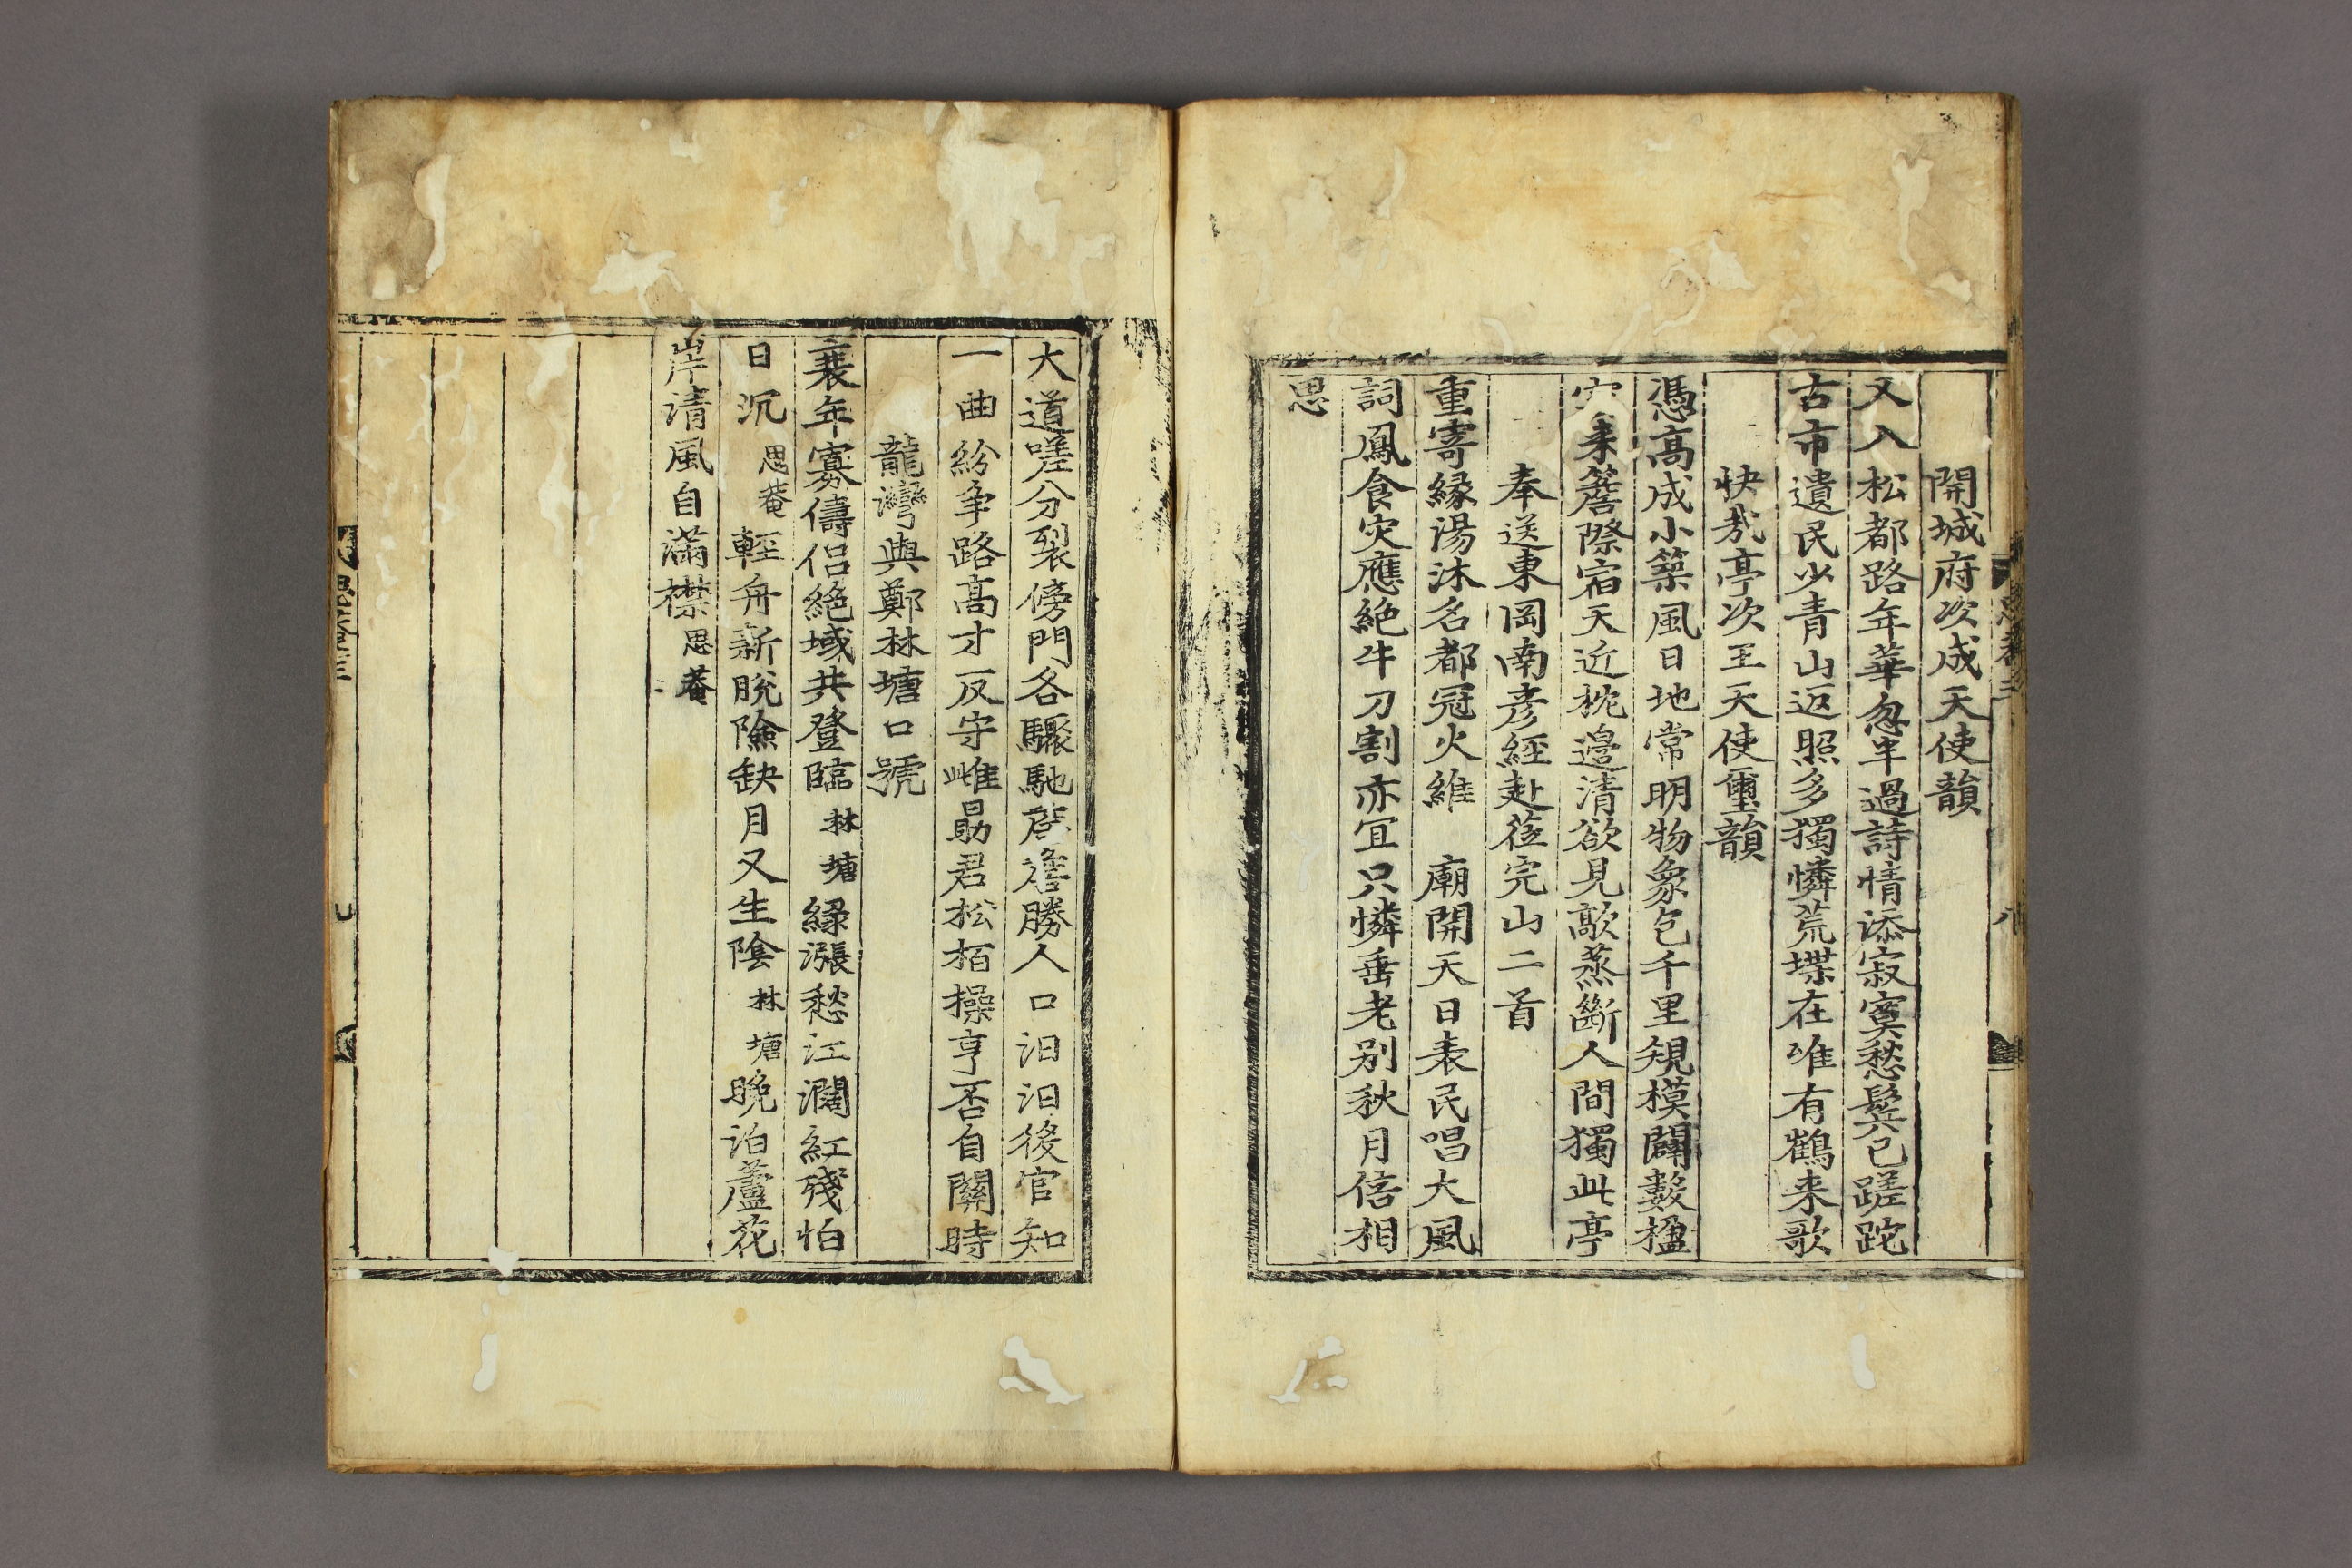 開城府次成天使韻
又入松都路年華忽半過詩情添寂寞愁鬂已蹉跎
古市遺民少青山返照多獨憐荒堞在唯有鶴来歌
快哉亭次王天使璽韻
憑高成小築風日地常明物象包千里規模闢數楹
来簷際宿天近枕邉清欲見歊蒸斷人間獨此亭
奉送東岡南彦經赴莅完山二首
重寄縁湯沐名都冠火維 廟開天日表民唱大風
詞鳳食灾應絶牛刀割亦宜只憐垂老别秋月倍相
思
大道嗟分裂傍門各驟馳 勝人口汨汨後官知
一曲紛争路高才反守雌勗君松栢操亨否自關時
龍灣與鄭林塘口號
衰年寡儔侣絶域共登臨 林塘 緑漲愁江濶紅殘怕
日沉 思菴 輕舟新脱險缺月又生陰 林塘 晩泊蘆花
岸清風自滿襟 思菴
八
九